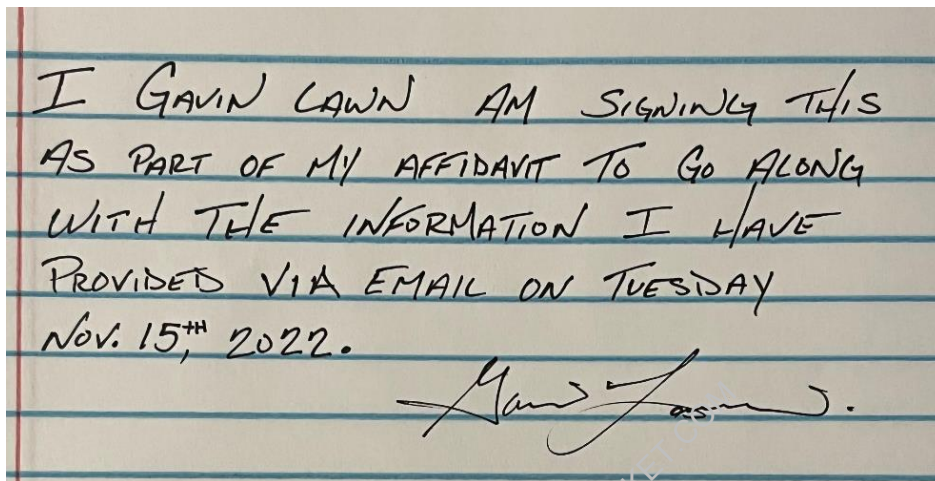 I GAVIN LAWN AM SIGNING THIS
AS PART OF MY AFFIDAVIT TO GO ALONG
WITH THE INFORMATION I HAVE
PROVIDED VIA EMAIL ON TUESDAY
NOV. 15,TH 2022.